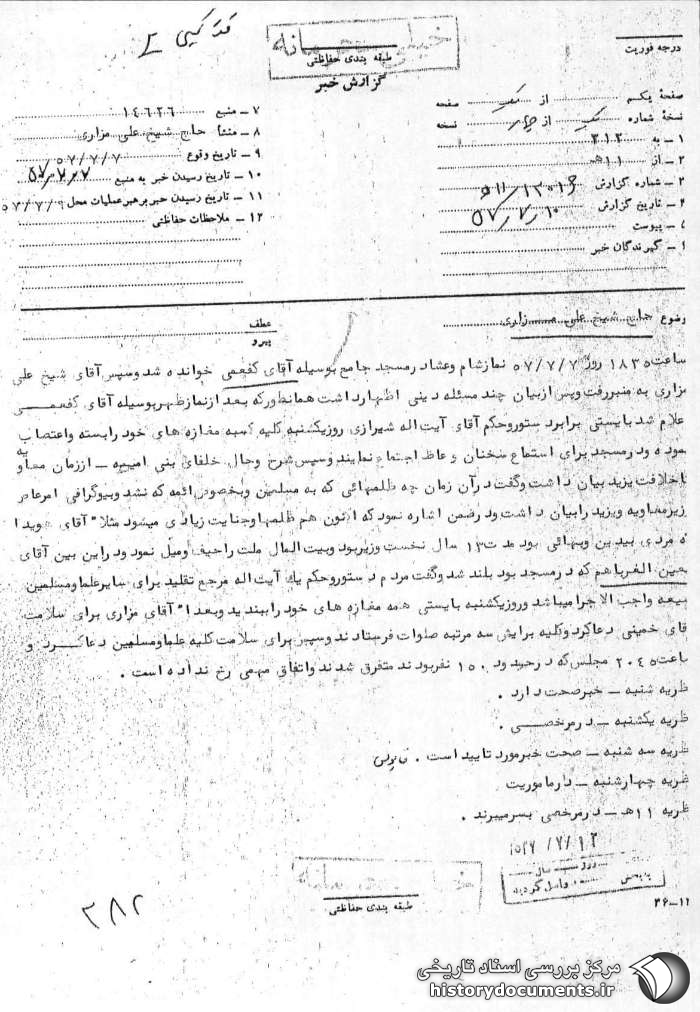 خیلی محرمانه
طبقه بندی حفاظتی
گزارش خبر
درجه فوریت
صفحه یکم از یک صفحه
نسخه شماره یک از چهار نسخه
۱ – به ۳۱۲
۲ – از ۱۱هـ
۳ – شماره گزارش
۴ – تاریخ گزارش ۵۷/۷/۱۰
– پیوست
– گیرندگان خبر
۷ – منبع ۱۴۶۲۶
۸ – منشأ حاج شیخ علی مزاری
۹ – تاریخ وقوع ۵۷/۷/۷
۱۰ – تاریخ رسیدن خبر به منبع ۵۷/۷/۷
۱۱ – تاریخ رسیدن خبر برهبر عملیات محل ۵۷/۷/۹
۱۲ – ملاحظات حفاظتی
وضوع حاج شیخ علی مزاری
عطف
پیرو
ساعت ۱۸۳۵ روز ۵۷/۷/۷ نماز شام و عشا در مسجد جامع بوسیله آقای کفعمی خوانده شد و سپس آقای شیخ علی
مزاری به منبر رفت و پس از بیان چند مسئله دینی اظهار داشت همانطور که بعد از نماز ظهر بوسیله آقای کفعمی
علام شد بایستی برابر دستور و حکم آقای آیت اله شیرازی روز یکشنبه کلیه کسبه مغازه های خود را بسته و اعتصاب
نموده و در مسجد برای استماع سخنان وعاظ اجتماع نمایند و سپس شرح و حال خلفای بنی امیه – از زمان معاویه
تا خلافت یزید بیان داشت و گفت در آن زمان چه ظلمهائی که به مسلمین و بخصوص ائمه که نشد و بیوگرافی عمر عاص
زیر معاویه و یزید را بیان داشت و در ضمن اشاره نمود که اکنون هم ظلمها و جنایت زیادی میشود مثلا" آقای هویدا
ه مردی بیدین و بهائی بود مدت ۱۳ سال نخست وزیر بود و بیت المال ملت را حیف و میل نمود در این بین آقای
معین الغرباهم که در مسجد بود بلند شد و گفت مردم دستور و حکم یك آیت اله مرجع تقلید برای سایر علما و مسلمین
یعه واجب الاجرا میباشد و روز یکشنبه بایستی همه مغازه های خود را ببندید و بعدا" آقای مزاری برای سلامت
قای خمینی دعا کرد و کلیه برایش سه مرتبه صلوات فرستادند و سپس برای سلامت کلیه علما و مسلمین دعا کرد و
ساعت ۲۰۴۵ مجلس که در حدود ۱۵۰ نفر بودند متفرق شدند و اتفاق مهمی رخ نداده است .
ظریه شنبه – خبر صحت دارد .
ظریه یکشنبه – در مرخصی .
ظریه سه شنبه – صحت خبر مورد تایید است .
ظریه چهارشنبه – در ماموریت
ظریه ۱۱هـ – در مرخصی بسر میبرند .
طبقه بندی حفاظتی
۳۸۲
۳۶-۱۱
مرکز بررسی اسناد تاریخی
historydocuments.ir